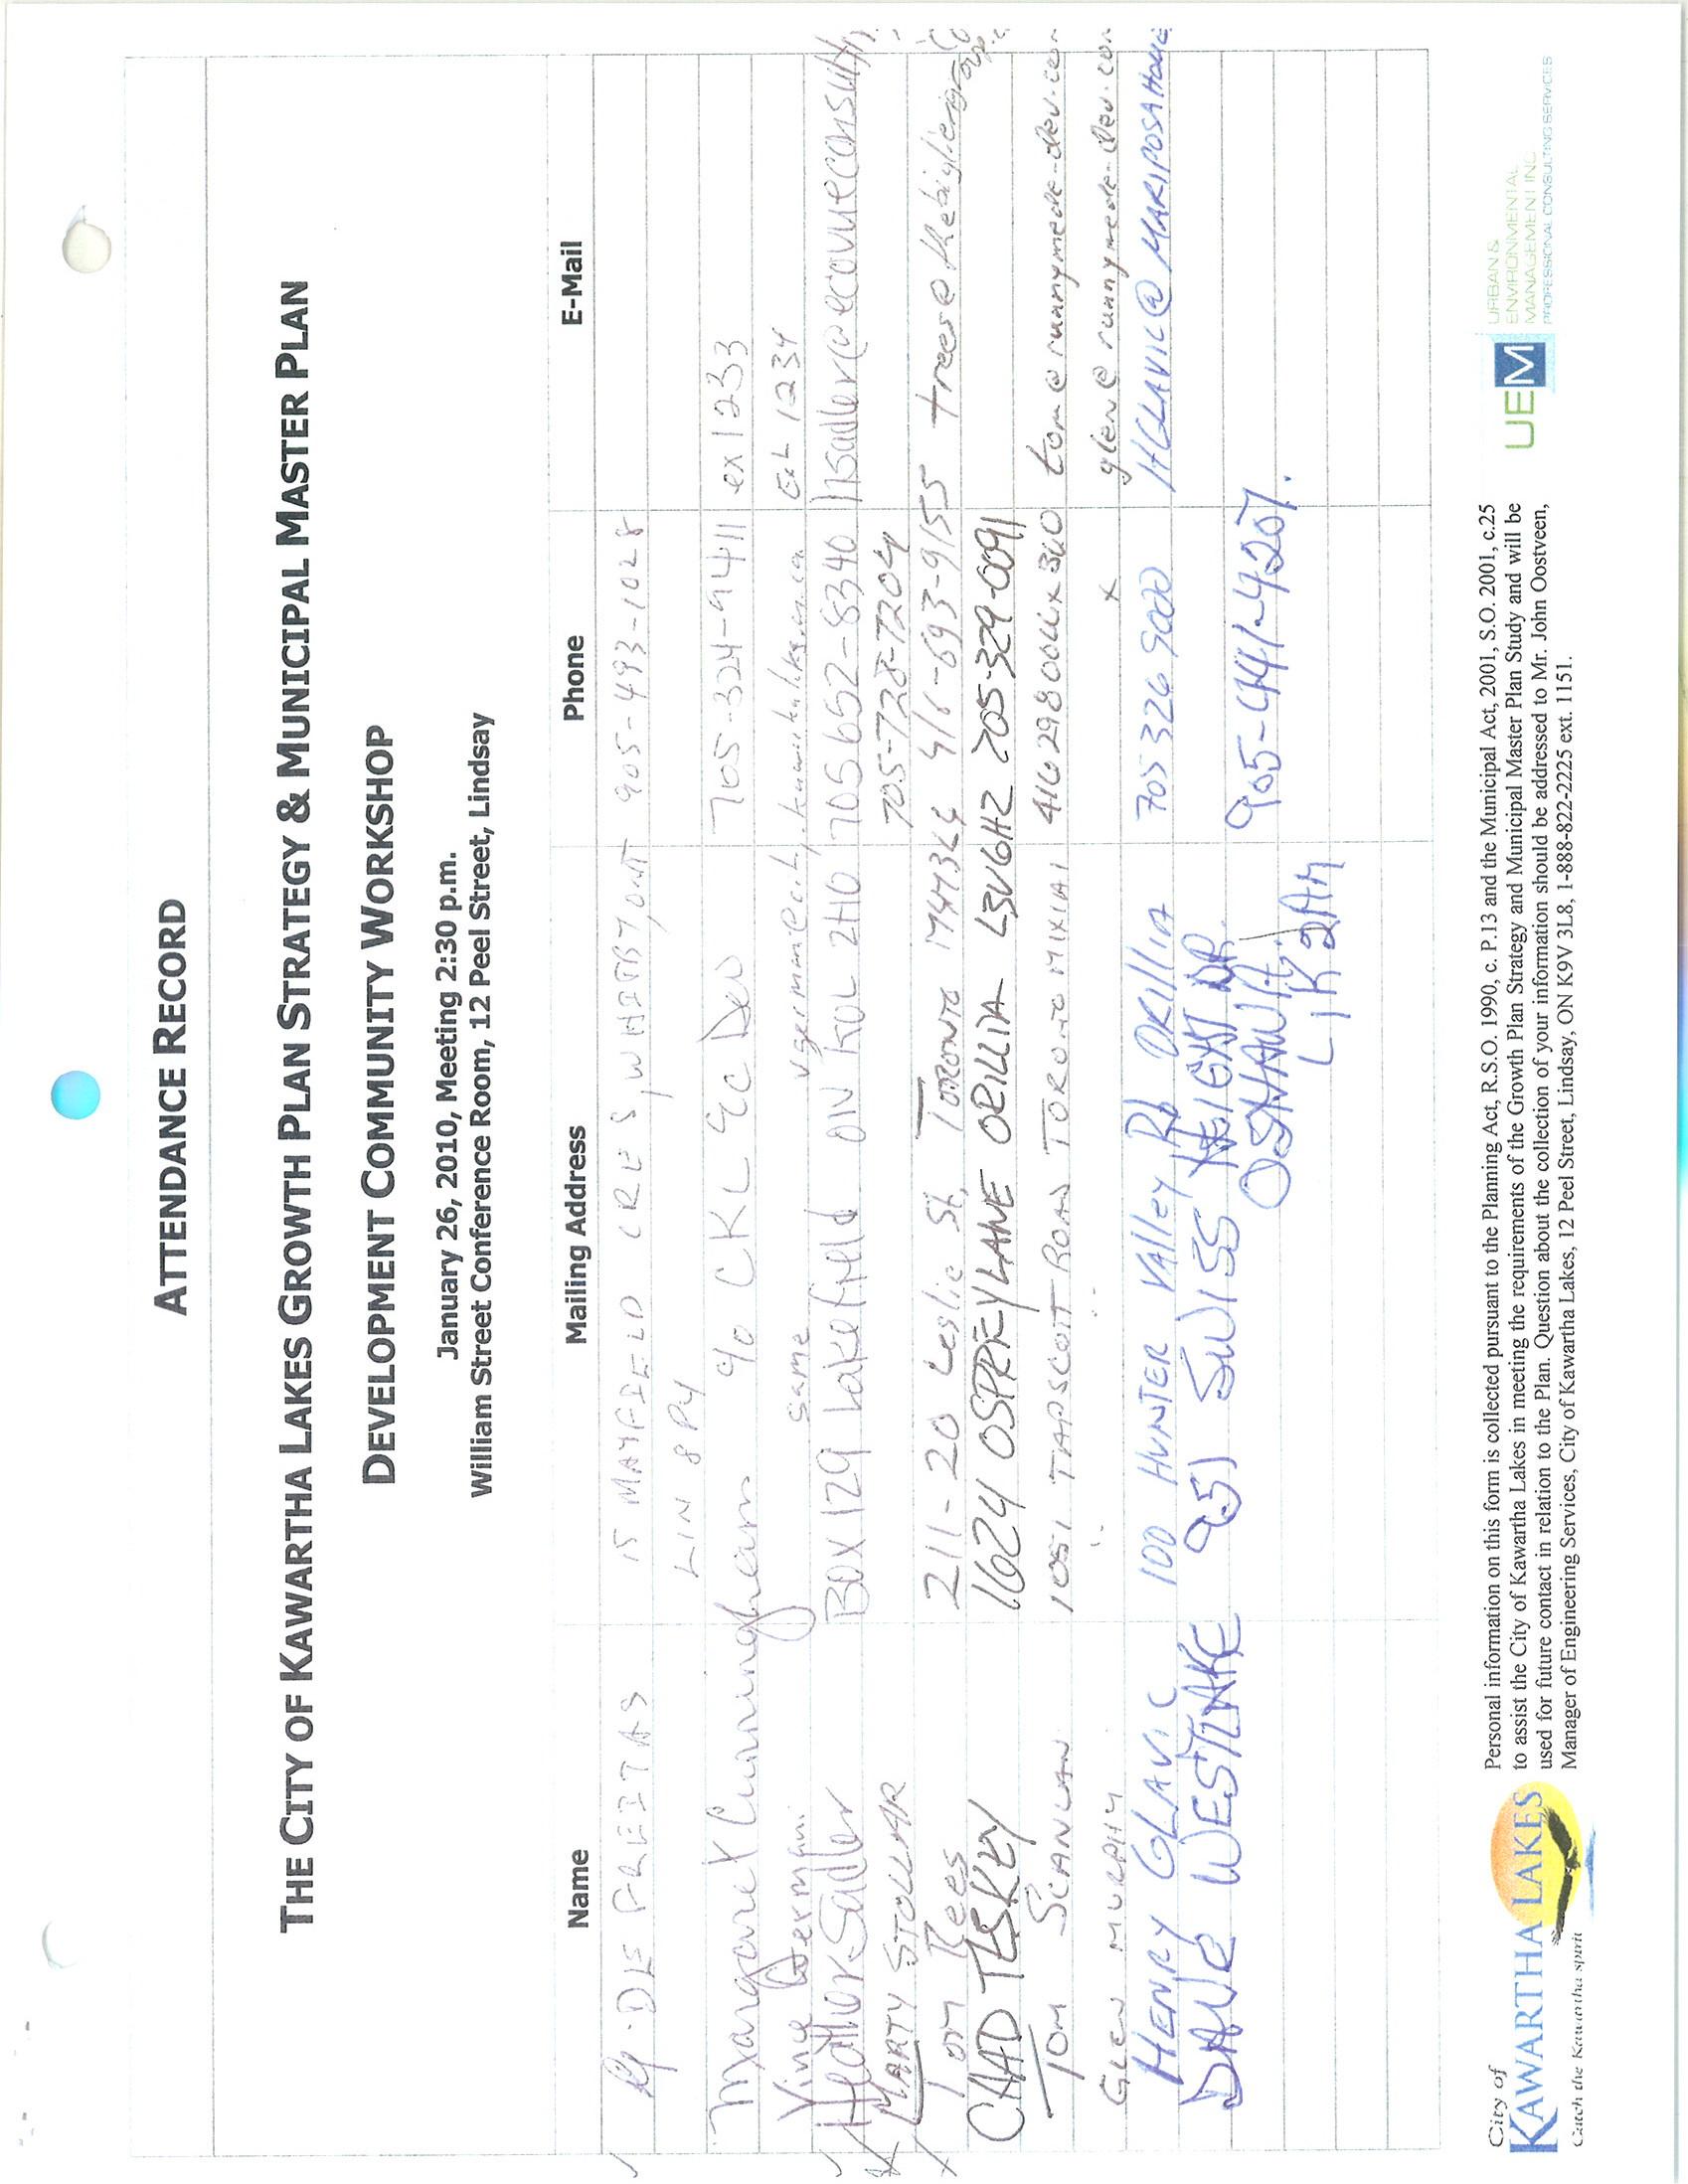 ATTENDANCE RECORD
THE CITY OF KAWARTHA LAKES GROWTH PLAN STRATEGY & MUNICIPAL MASTER PLAN
DEVELOPMENT COMMUNITY WORKSHOP
January 26, 2010, Meeting 2:30 p.m.
William Street Conference Room, 12 Peel Street, Lindsay
Name Mailing Address Phone E-Mail
DE FREITAS 15 MAYFIELD CRES, WHITBY, ONT 905-493-1028
L1N 8P4
Margaret Cunningham c/o CKL Ec Dev 705-324-9411 ex 1233
same Ext 1234
Heather Sadler Box 129 Lakefield ON K0L 2H0 705 652-8340 hsadler@ecovueconsulting.
MARTY STOLLAR 705-728-7204
Tom Rees 211-20 Leslie St, Toronto M4M3L4 416-693-9155
CHAD TESKEY 1624 OSPREY LANE ORILLIA L3V6H2 705-329-0091
TOM SCANLAN 1051 TAPSCOTT ROAD TORONTO M1X1A1 416 298 0066 x 360 tom@runnymede-dev.com
GLEN MURPHY " " x glen@runnymede-dev.com
HENRY GLAVIC 100 HUNTER Valley Rd ORILLIA 705 326 9000 HGLAVIC@MARIPOSAHOME
DAVE WESTLAKE 951 SWISS HEIGHT DR. 905-441-4207.
OSHAWA
L1K 2A
City of
KAWARTHA LAKES
Catch the Kawartha spirit
Personal information on this form is collected pursuant to the Planning Act, R.S.O. 1990, c. P.13 and the Municipal Act, 2001, S.O. 2001, c.25
to assist the City of Kawartha Lakes in meeting the requirements of the Growth Plan Strategy and Municipal Master Plan Study and will be
used for future contact in relation to the Plan. Question about the collection of your information should be addressed to Mr. John Oostveen,
Manager of Engineering Services, City of Kawartha Lakes, 12 Peel Street, Lindsay, ON K9V 3L8, 1-888-822-2225 ext. 1151.
UEM
URBAN &
ENVIRONMENTAL
MANAGEMENT INC
PROFESSIONAL CONSULTING SERVICES